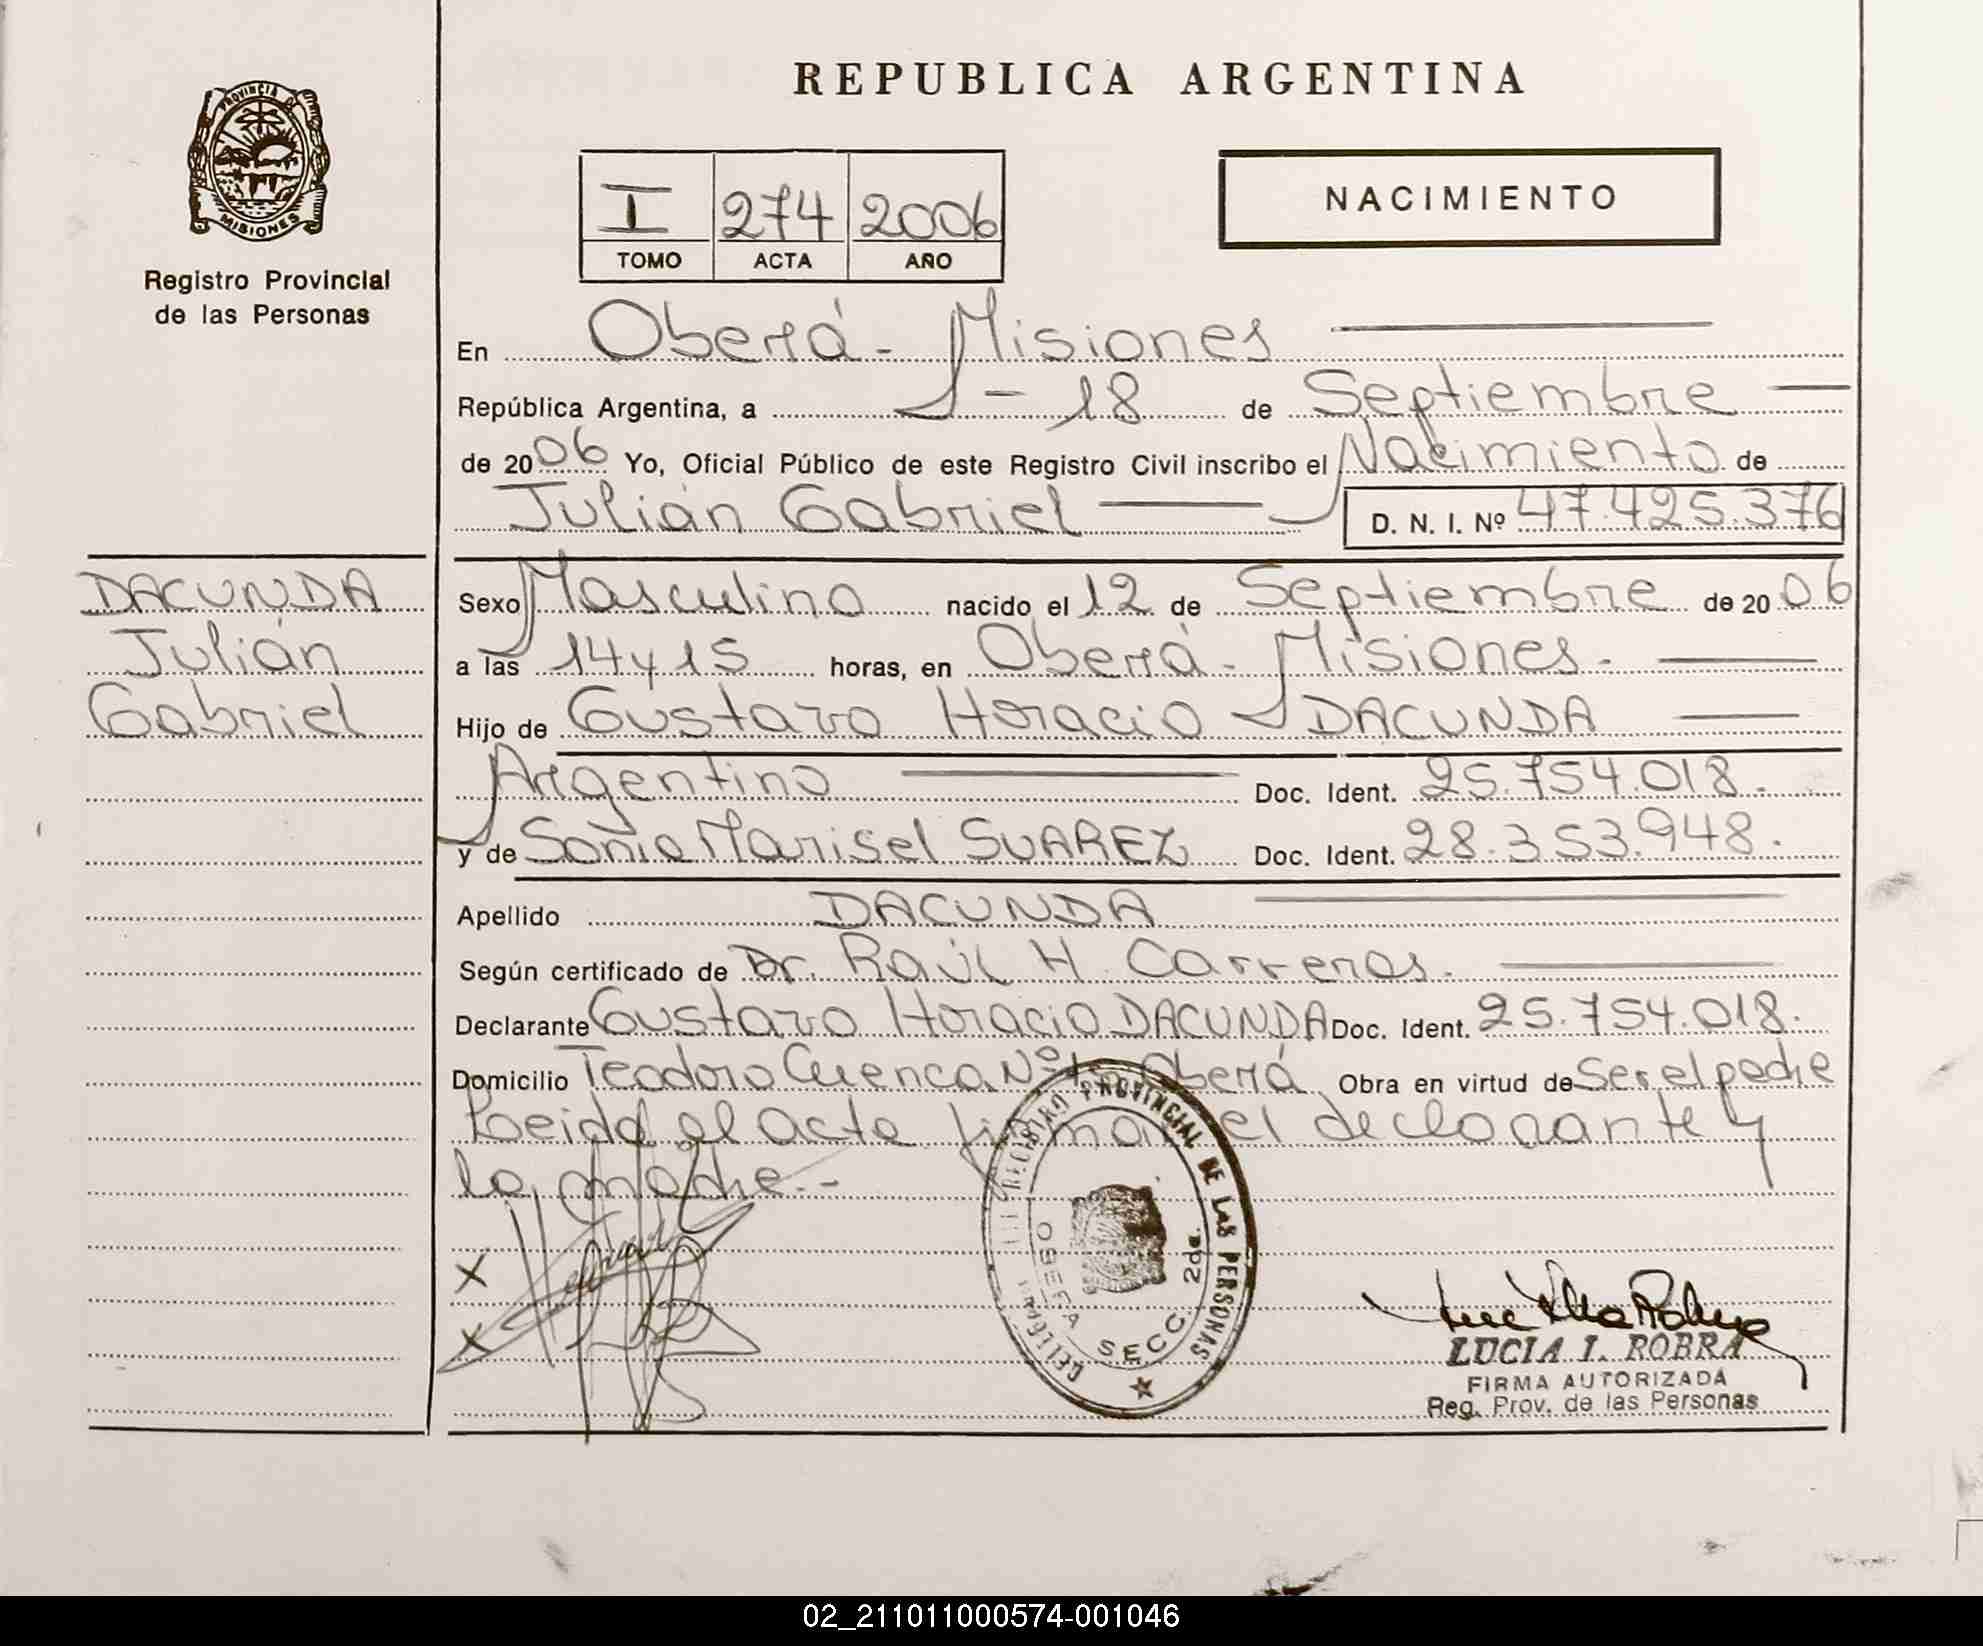 PROVINCIA DE
MISIONES
Registro Provincial
de las Personas
REPUBLICA ARGENTINA
NACIMIENTO
I 274 2006
TOMO ACTA AÑO
En Oberá - Misiones
República Argentina, a - 18 de Septiembre
de 2006 Yo, Oficial Público de este Registro Civil inscribo el Nacimiento de
Julián Gabriel D. N. I. Nº 47.425.376
DACUNDA
Julián
Gabriel
Sexo Masculino nacido el 12 de Septiembre de 2006
a las 14 y 15 horas, en Oberá - Misiones.
Hijo de Gustavo Horacio DACUNDA
Argentino Doc. Ident. 25.754.018.
y de Sonia Marisel SUAREZ Doc. Ident. 28.353.948.
Apellido DACUNDA
Según certificado de Dr. Raúl H. Carreras.
Declarante Gustavo Horacio DACUNDA Doc. Ident. 25.754.018.
Domicilio Teodoro Cuenca Nº Oberá Obra en virtud de Ser el padre
Leida el acta firman el declarante y
la madre.-
X
X
REGISTRO PROVINCIAL DE LAS PERSONAS
OBERA SECC. 2da.
LUCIA I. ROBRA
FIRMA AUTORIZADA
Reg. Prov. de las Personas
02_211011000574-001046